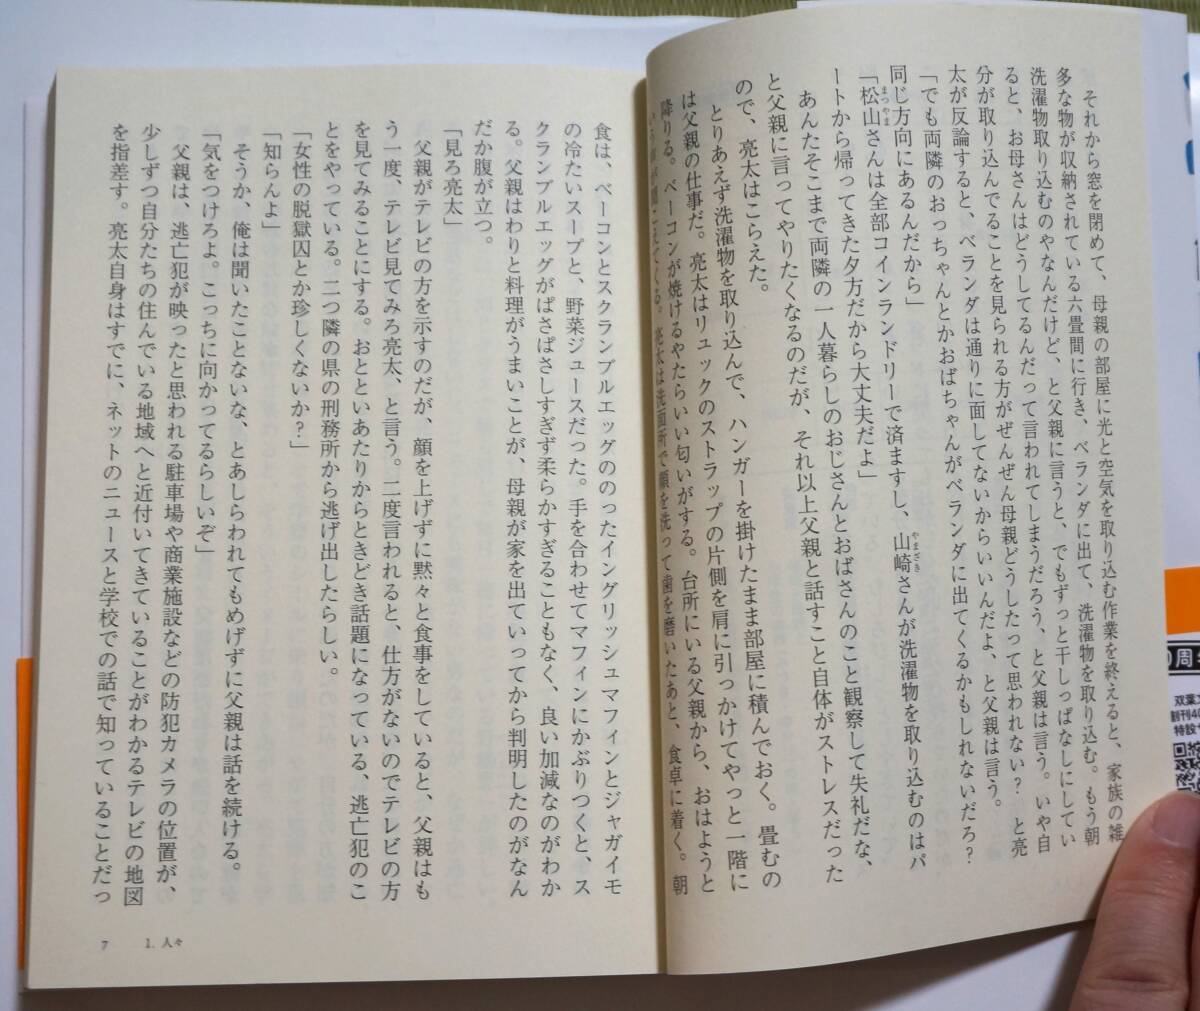 それから窓を閉めて、母親の部屋に光と空気を取り込む作業を終えると、家族の雑
多な物が収納されている六畳間に行き、ベランダに出て、洗濯物を取り込む。もう朝
洗濯物取り込むのやなんだけど、と父親に言うと、でもずっと干しっぱなしにしてい
ると、お母さんはどうしてるんだって言われてしまうだろう、と父親は言う。いや自
分が取り込んでることを見られる方がぜんぜん母親どうしたって思われない？　と亮
太が反論すると、ベランダは通りに面してないからいいんだよ、と父親は言う。
「でも両隣のおっちゃんとかおばちゃんがベランダに出てくるかもしれないだろ？
同じ方向にあるんだから」
「松山さんは全部コインランドリーで済ますし、山崎さんが洗濯物を取り込むのはパ
まつやま
やまざき
ートから帰ってきた夕方だから大丈夫だよ」
あんたそこまで両隣の一人暮らしのおじさんとおばさんのこと観察して失礼だな、
と父親に言ってやりたくなるのだが、それ以上父親と話すこと自体がストレスだった
ので、亮太はこらえた。
とりあえず洗濯物を取り込んで、ハンガーを掛けたまま部屋に積んでおく。畳むの
は父親の仕事だ。亮太はリュックのストラップの片側を肩に引っかけてやっと一階に
降りる。ベーコンが焼けるやたらいい匂いがする。台所にいる父親から、おはようと
こえてくる。亮太は洗面所で顔を洗って歯を磨いたあと、食卓に着く。朝
食は、ベーコンとスクランブルエッグののったイングリッシュマフィンとジャガイモ
の冷たいスープと、野菜ジュースだった。手を合わせてマフィンにかぶりつくと、ス
クランブルエッグがぱさぱさしすぎず柔らかすぎることもなく、良い加減なのがわか
る。父親はわりと料理がうまいことが、母親が家を出ていってから判明したのがなん
だか腹が立つ。
「見ろ亮太」
父親がテレビの方を示すのだが、顔を上げずに黙々と食事をしていると、父親はも
う一度、テレビ見てみろ亮太、と言う。二度言われると、仕方がないのでテレビの方
を見てみることにする。おとといあたりからときどき話題になっている、逃亡犯のこ
とをやっている。二つ隣の県の刑務所から逃げ出したらしい。
「女性の脱獄囚とか珍しくないか？」
「知らんよ」
そうか、俺は聞いたことないな、とあしらわれてもめげずに父親は話を続ける。
「気をつけろよ。こっちに向かってるらしいぞ」
父親は、逃亡犯が映ったと思われる駐車場や商業施設などの防犯カメラの位置が、
少しずつ自分たちの住んでいる地域へと近付いてきていることがわかるテレビの地図
を指差す。亮太自身はすでに、ネットのニュースと学校での話で知っていることだっ
7　1. 人々
周
双葉
創刊40
特設